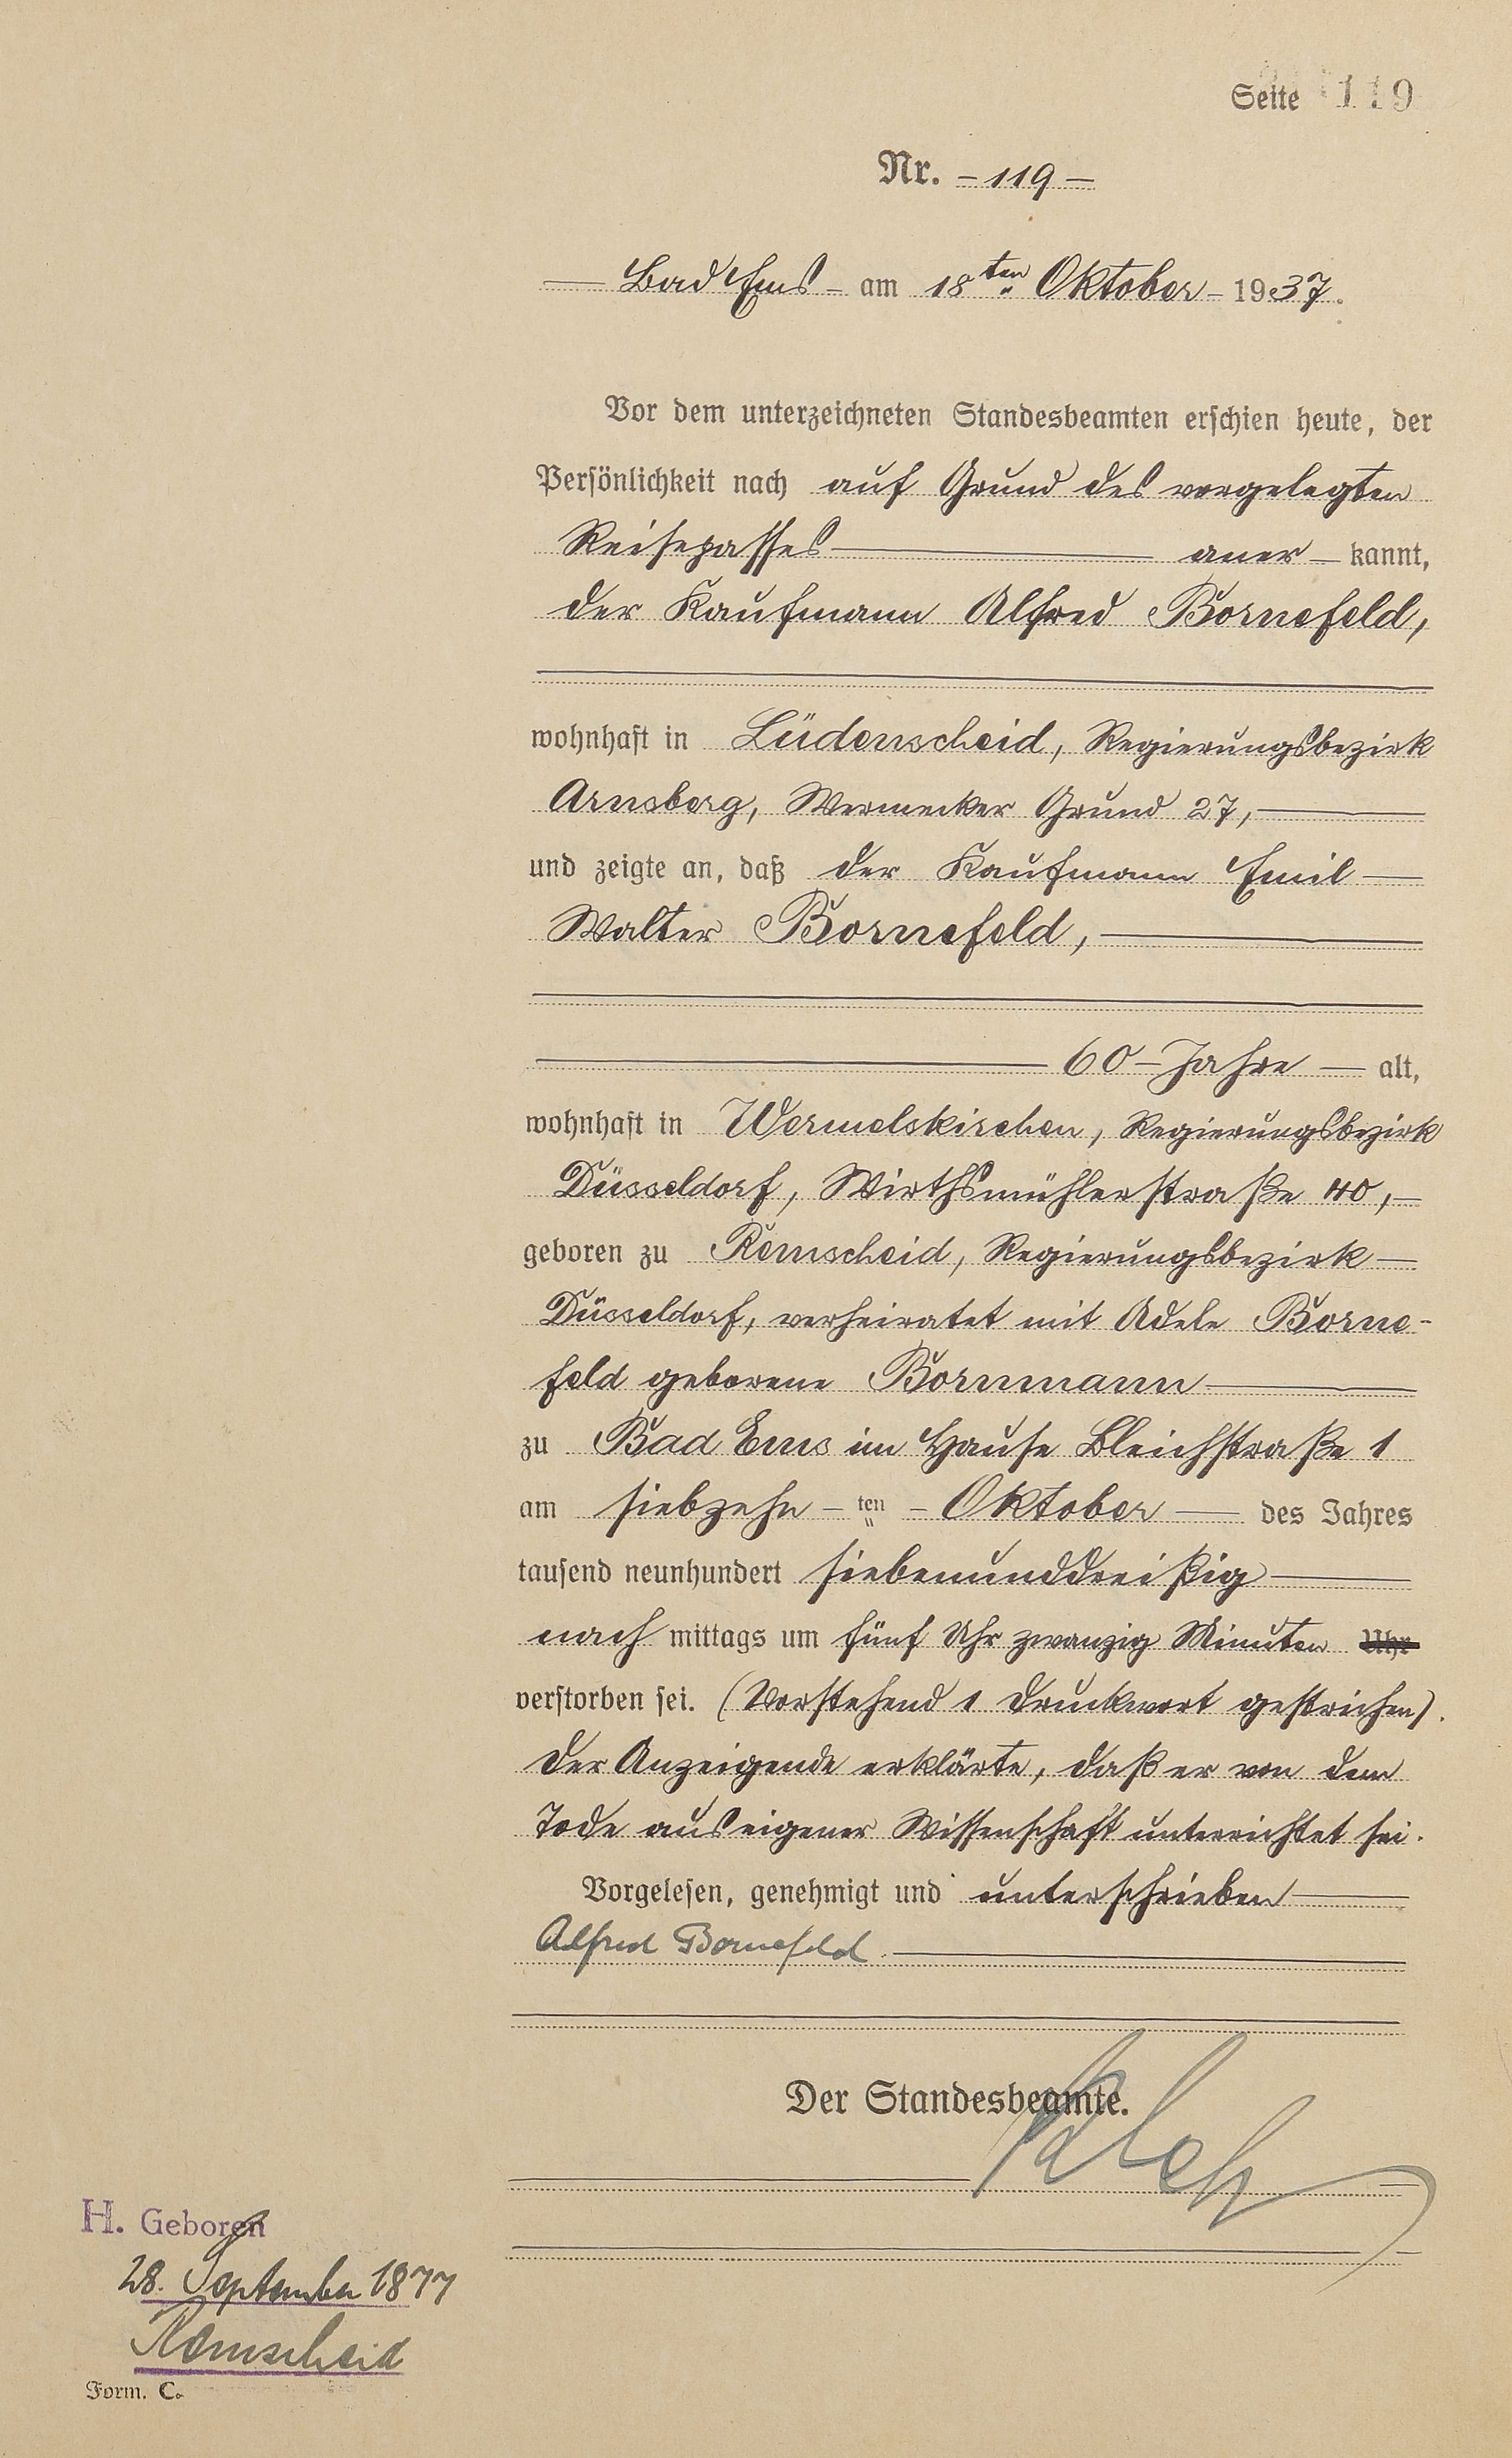 Seite 119
Nr. – 119 –
Bad Ems – am 18ten Oktober – 1937.
Vor dem unterzeichneten Standesbeamten erschien heute, der
Persönlichkeit nach auf Grund des vorgelegten
Reisepasses aner – kannt,
der Kaufmann Alfred Bornefeld,
wohnhaft in Lüdenscheid, Regierungsbezirk
Arnsberg, Wermecker Grund 27,
und zeigte an, daß der Kaufmann Emil
Walter Bornefeld,
60 – Jahre – alt,
wohnhaft in Wermelskirchen, Regierungsbezirk
Düsseldorf, Wirthsmühlerstraße 40,
geboren zu Remscheid, Regierungsbezirk
Düsseldorf, verheiratet mit Adele Borne-
feld geborene Bornmann
zu Bad Ems im Hause Bleichstraße 1
am siebzehn – ten – Oktober des Jahres
tausend neunhundert siebenunddreißig
nach mittags um fünf Uhr zwanzig Minuten Uhr
verstorben sei. (Vorstehend 1 Druckwort gestrichen).
Der Anzeigende erklärte, daß er von dem
Tode aus eigener Wissenschaft unterrichtet sei.
Vorgelesen, genehmigt und unterschrieben
Alfred Bornefeld.
Der Standesbeamte.
H. Geboren
28. September 1877
Remscheid
Form. C.